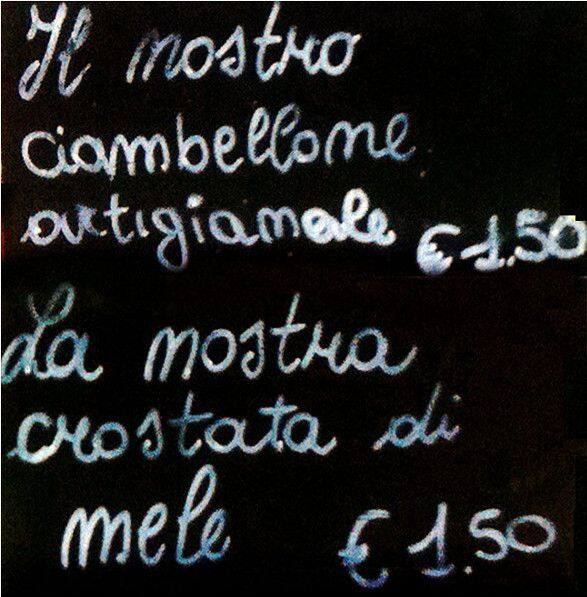 Il nostro
ciambellone
artigianale € 1.50
La nostra
crostata di
mele € 1.50